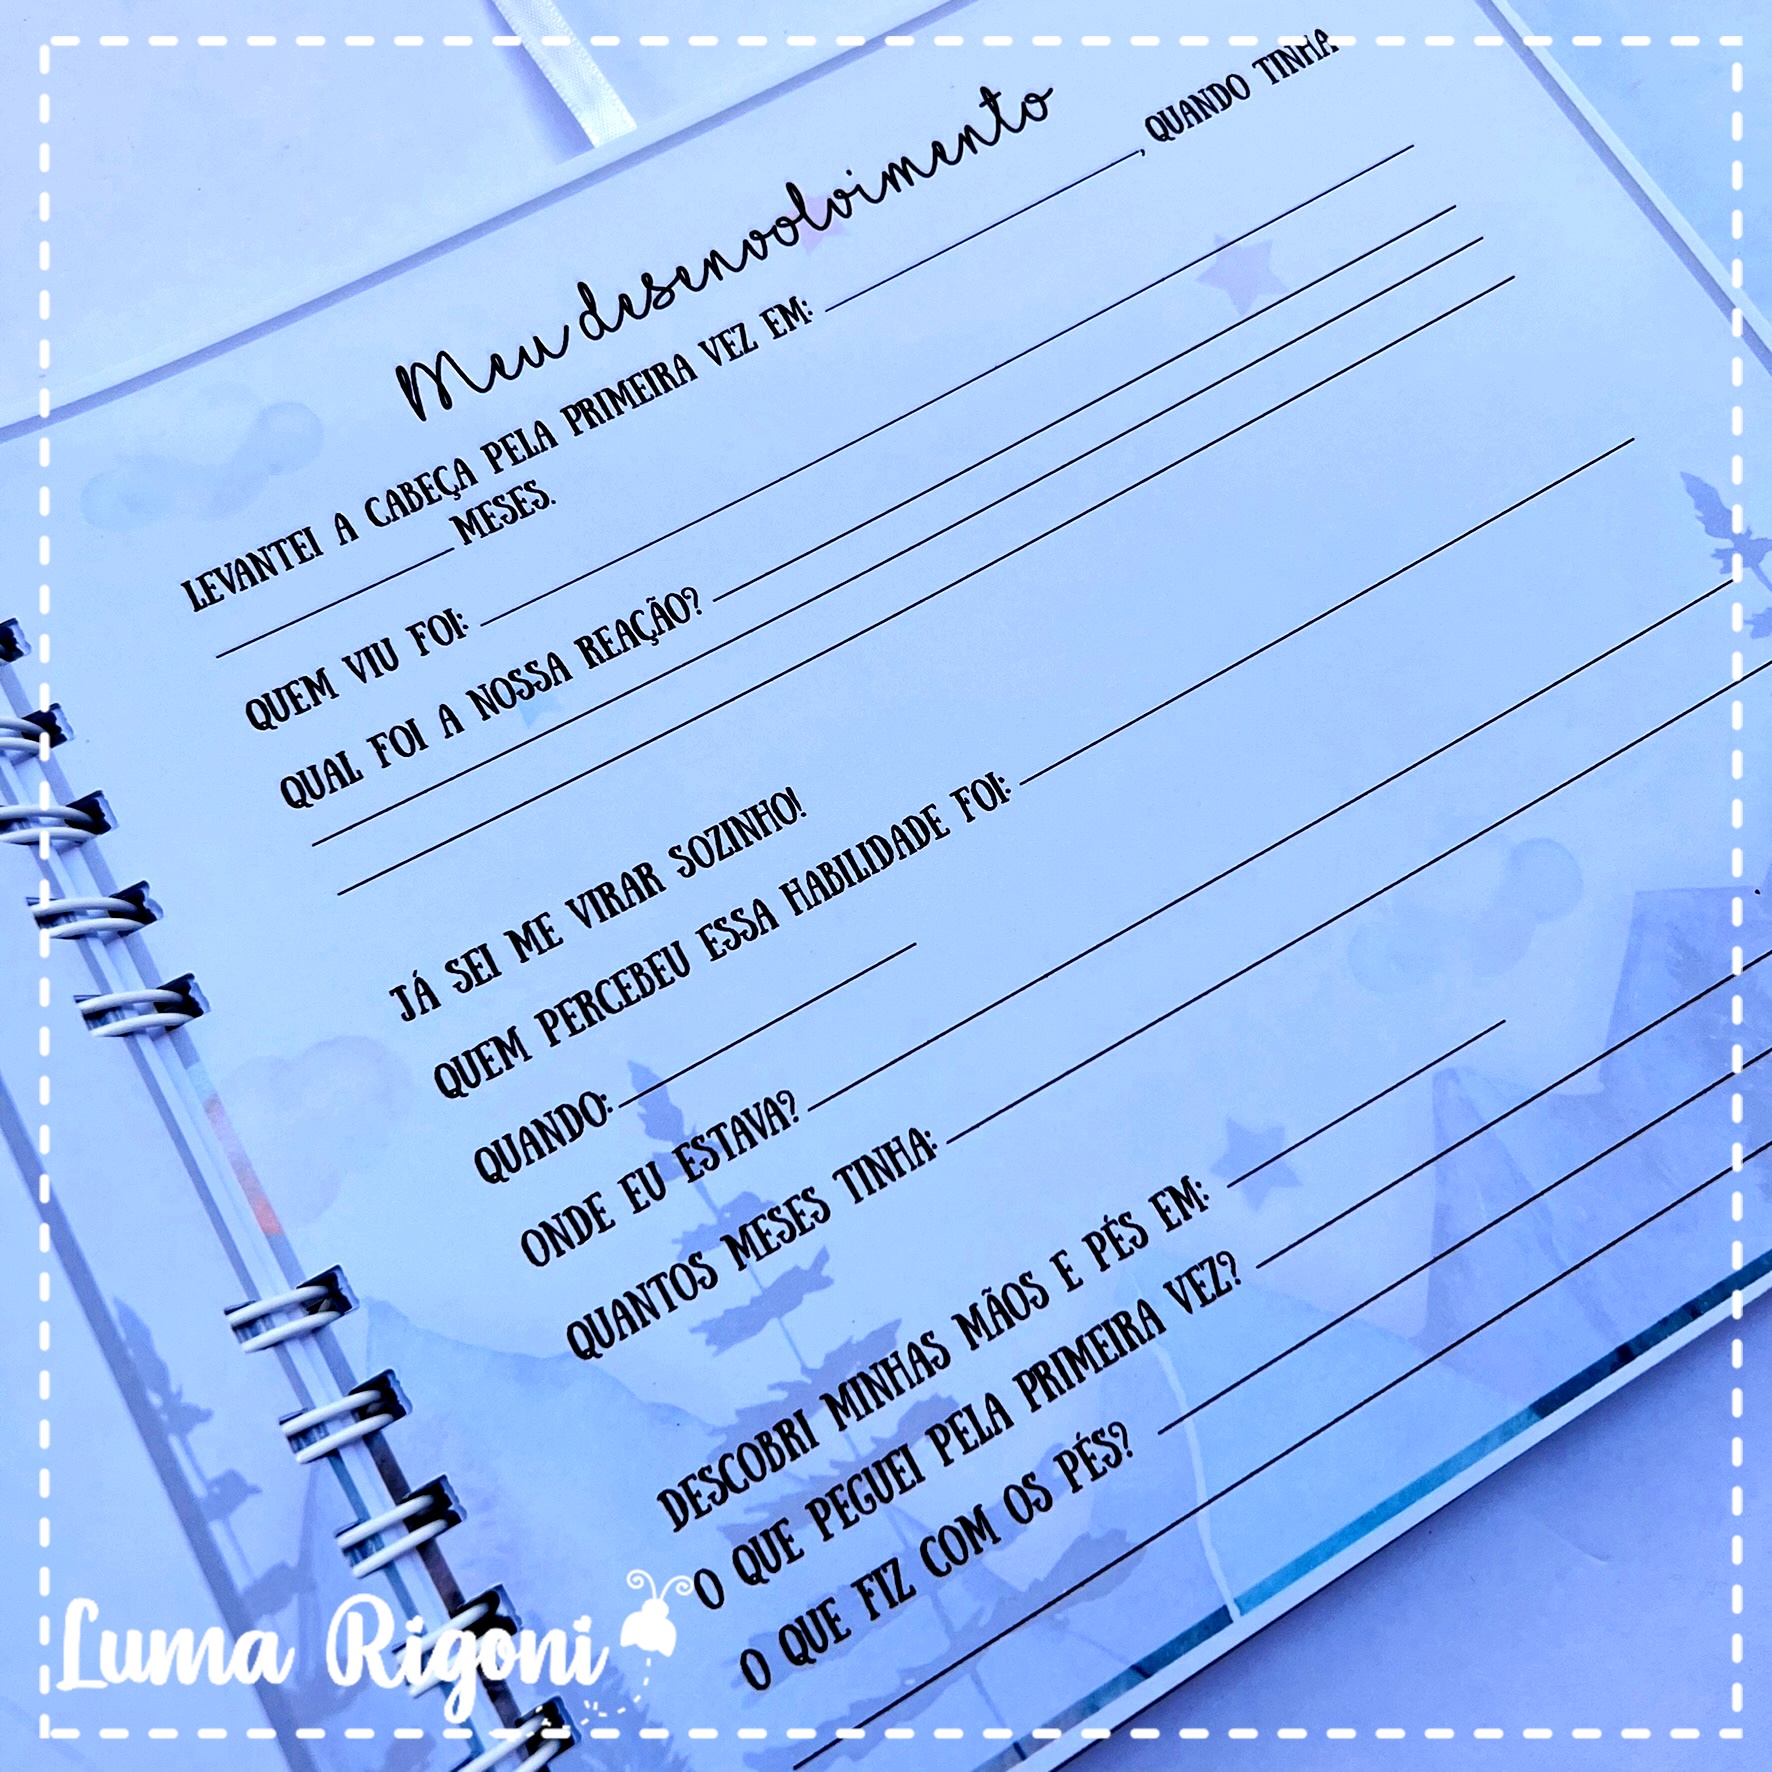 Meu desenvolvimento
LEVANTEI A CABEÇA PELA PRIMEIRA VEZ EM: ____________, QUANDO TINHA
____________ MESES.
QUEM VIU FOI: ____________
QUAL FOI A NOSSA REAÇÃO? ____________
JÁ SEI ME VIRAR SOZINHO!
QUEM PERCEBEU ESSA HABILIDADE FOI: ____________
QUANDO: ____________
ONDE EU ESTAVA? ____________
QUANTOS MESES TINHA: ____________
DESCOBRI MINHAS MÃOS E PÉS EM: ____________
O QUE PEGUEI PELA PRIMEIRA VEZ? ____________
O QUE FIZ COM OS PÉS? ____________
Luma Rigoni